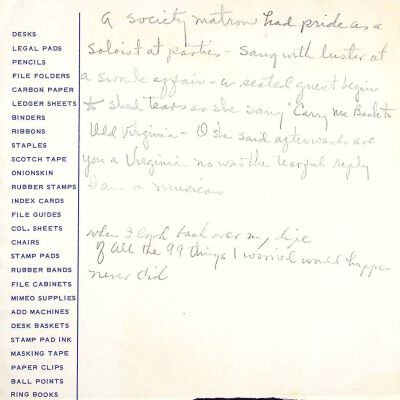 DESKS
LEGAL PADS
PENCILS
FILE FOLDERS
CARBON PAPER
LEDGER SHEETS
BINDERS
RIBBONS
STAPLES
SCOTCH TAPE
ONIONSKIN
RUBBER STAMPS
INDEX CARDS
FILE GUIDES
COL. SHEETS
CHAIRS
STAMP PADS
RUBBER BANDS
FILE CABINETS
MIMEO SUPPLIES
ADD MACHINES
DESK BASKETS
STAMP PAD INK
MASKING TAPE
PAPER CLIPS
BALL POINTS
RING BOOKS
A society matron had pride as a
soloist at parties - sang with luster at
a swank affair - a seated guest begin
to shed tears as she sang "Carry Me Back to
Old Virginia - O she said afterwards are
you a Virginia no was the tearful reply
I am a musican
when I look back over my life
of all the 99 things I worried would happen
never did